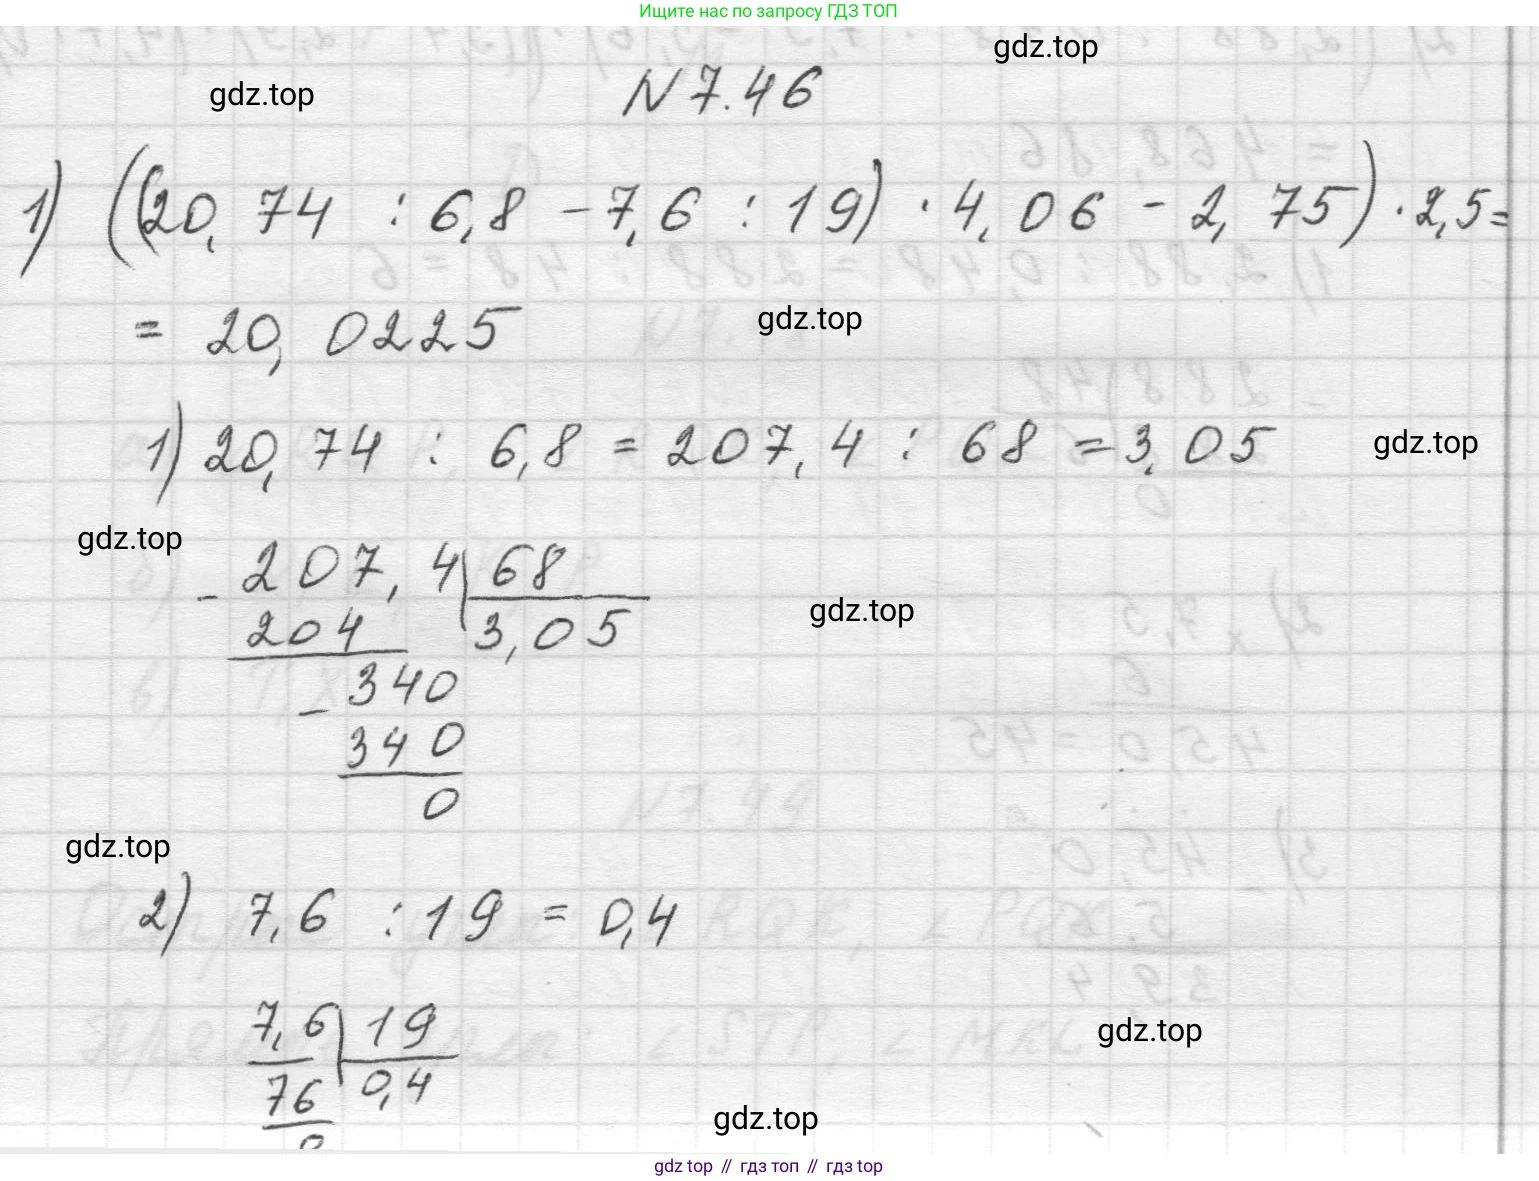 Ищите нас по запросу ГДЗ ТОП
gdz.top
gdz.top
N 7.46
1) ((20,74 : 6,8 - 7,6 : 19) · 4,06 - 2,75) · 2,5 =
= 20,0225
gdz.top
1) 20,74 : 6,8 = 207,4 : 68 = 3,05
gdz.top
gdz.top
- 207,4 | 68
204 3,05
gdz.top
- 340
340
0
gdz.top
2) 7,6 : 19 = 0,4
7,6 | 19
76 0,4
0
gdz.top
gdz.top
gdz top // гдз топ // гдз top